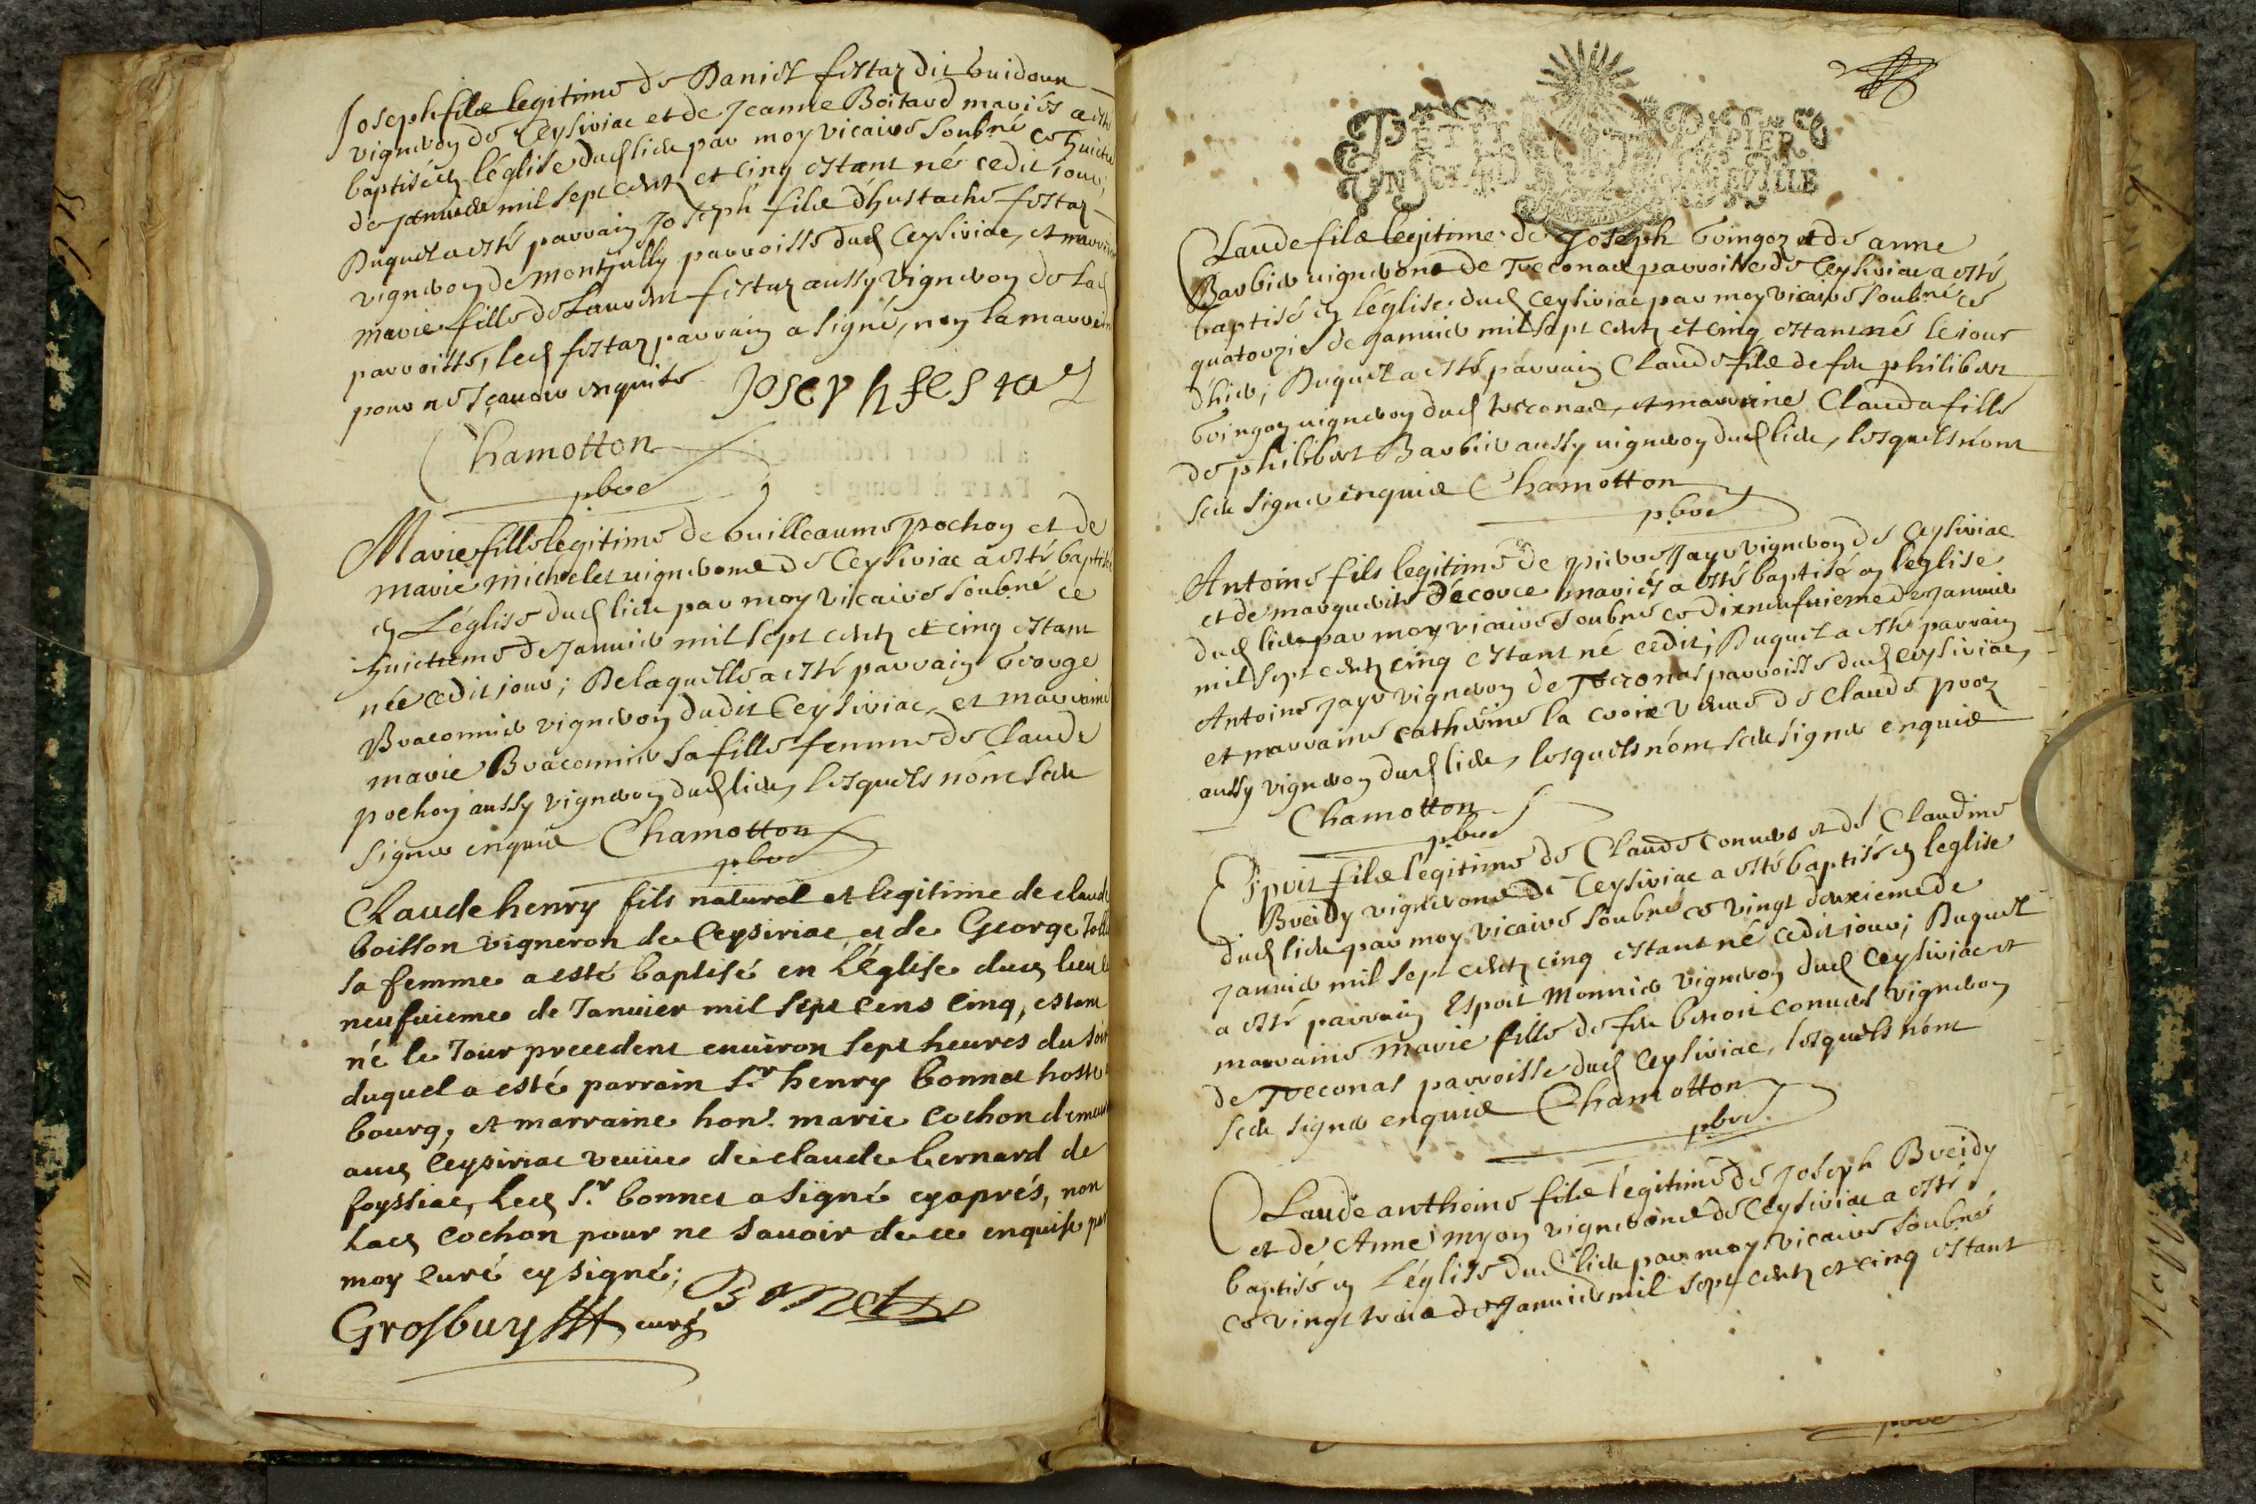 Joseph fils legitime de Daniel festaz dit Guidoux
vigneron de Ceysiriac et de Jeanne Boitard mariés a esté
baptisé en l'église dud lieu par moy vicaire soubné ce huictie
de janvier mil sept centz et cinq estant né cedit jour;
Duquel a esté parrain Joseph fils d'hustache festaz
vigneron de montjully parroisse dud Ceysiriac, et marraine
marie fille de Laurent festaz aussy vigneron de lad
parroisse, led festaz parrain a signé, non la marraine
pour ne sçavoir enquise Joseph festaz
Chamotton
pbre
Marie fille legitime de Guilleaume pochon et de
marie michelet vignerons de Ceysiriac a esté baptisée
en L'église dud lieu par moy vicaire soubné ce
huictieme de Janvier mil sept centz et cinq estant
née cedit jour; De laquelle a esté parrain George
Braconnier vigneron dudit Ceysiriac, et marraine
marie Braconnier sa fille femme de Claude
pochon aussy vigneron dud lieu, lesquels n'ont sceu
signer enquis Chamotton
pbre
Claude henry fils naturel et legitime de claude
boisson vigneron de Ceysiriac et de George
sa femme a esté baptisé en l'église dud lieu le
neufuieme de Janvier mil sept cens cinq, estant
né le Jour precedent environ sept heures du soir
duquel a esté parrain sr henry bonnet hoste
bourg, et marraine hon. marie cochon
aud Ceysiriac veuve de claude bernard de
foyssiac, led sr bonnet a signé cyaprés, non
lad cochon pour ne savoir de ce enquise par
moy curé cy signé;
Grosbuy curé Bonet
PETIT PAPIER
UN SOL
Claude fils legitime de Joseph Goingoz et de anne
Barbier vignerons de Treconas parroisse de Ceysiriac a esté
baptisé en l'église dud Ceysiriac par moy vicaire soubné ce
quatorzie de Janvier mil sept centz et cinq estant né le jour
d'hier; Duquel a esté parrain Claude fils de feu philibert
Goingoz vigneron dud treconas, et marraine Clauda fille
de philibert Barbier aussy vigneron dud lieu, lesquels n'ont
sceu signer enquis Chamotton
pbre
Antoine fils legitime de pierre Jayr vigneron de Ceysiriac
et de marguerite Decorce mariés a esté baptisé en l'eglise
dud lieu par moy vicaire soubné ce dixneufuieme de Janvier
mil sept centz cinq estant né cedit; Duquel a esté parrain
Antoine Jayr vigneron de Treconas parroisse dud Ceysiriac,
et marraine catherine la croix veuve de Claude
aussy vigneron dud lieu, lesquels n'ont sceu signer enquis
Chamotton
pbre
Espoir fils legitime de Claude Convers et de Claudine
Breidy vignerons de Ceysiriac a esté baptisé en l'eglise
dud lieu par moy vicaire soubné ce vingt deuxieme de
Janvier mil sept centz cinq estant né cedit jour; Duquel
a esté parrain Espoir Monnier vigneron dud Ceysiriac et
marraine Marie fille de feu benoit convert vigneron
de Treconas parroisse dud Ceysiriac, lesquels n'ont
sceu signer enquis Chamotton
pbre
Claude anthoine fils legitime de Joseph Breidy
et de Anne myon vignerons de Ceysiriac a esté
baptisé en L'église dud lieu par moy vicaire soubné
ce vingt trois de Janvier mil sept centz et cinq estant